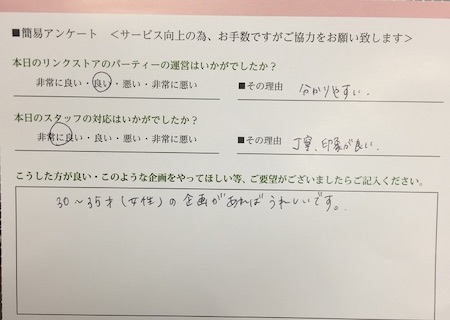 ■簡易アンケート ＜サービス向上の為、お手数ですがご協力をお願い致します＞
本日のリンクストアのパーティーの運営はいかがでしたか？
非常に良い・良い・悪い・非常に悪い ■その理由 分かりやすい。
本日のスタッフの対応はいかがでしたか？
非常に良い・良い・悪い・非常に悪い ■その理由 丁寧、印象が良い。
こうした方が良い・このような企画をやってほしい等、ご要望がございましたらご記入ください。
30～35才（女性）の企画があればうれしいです。